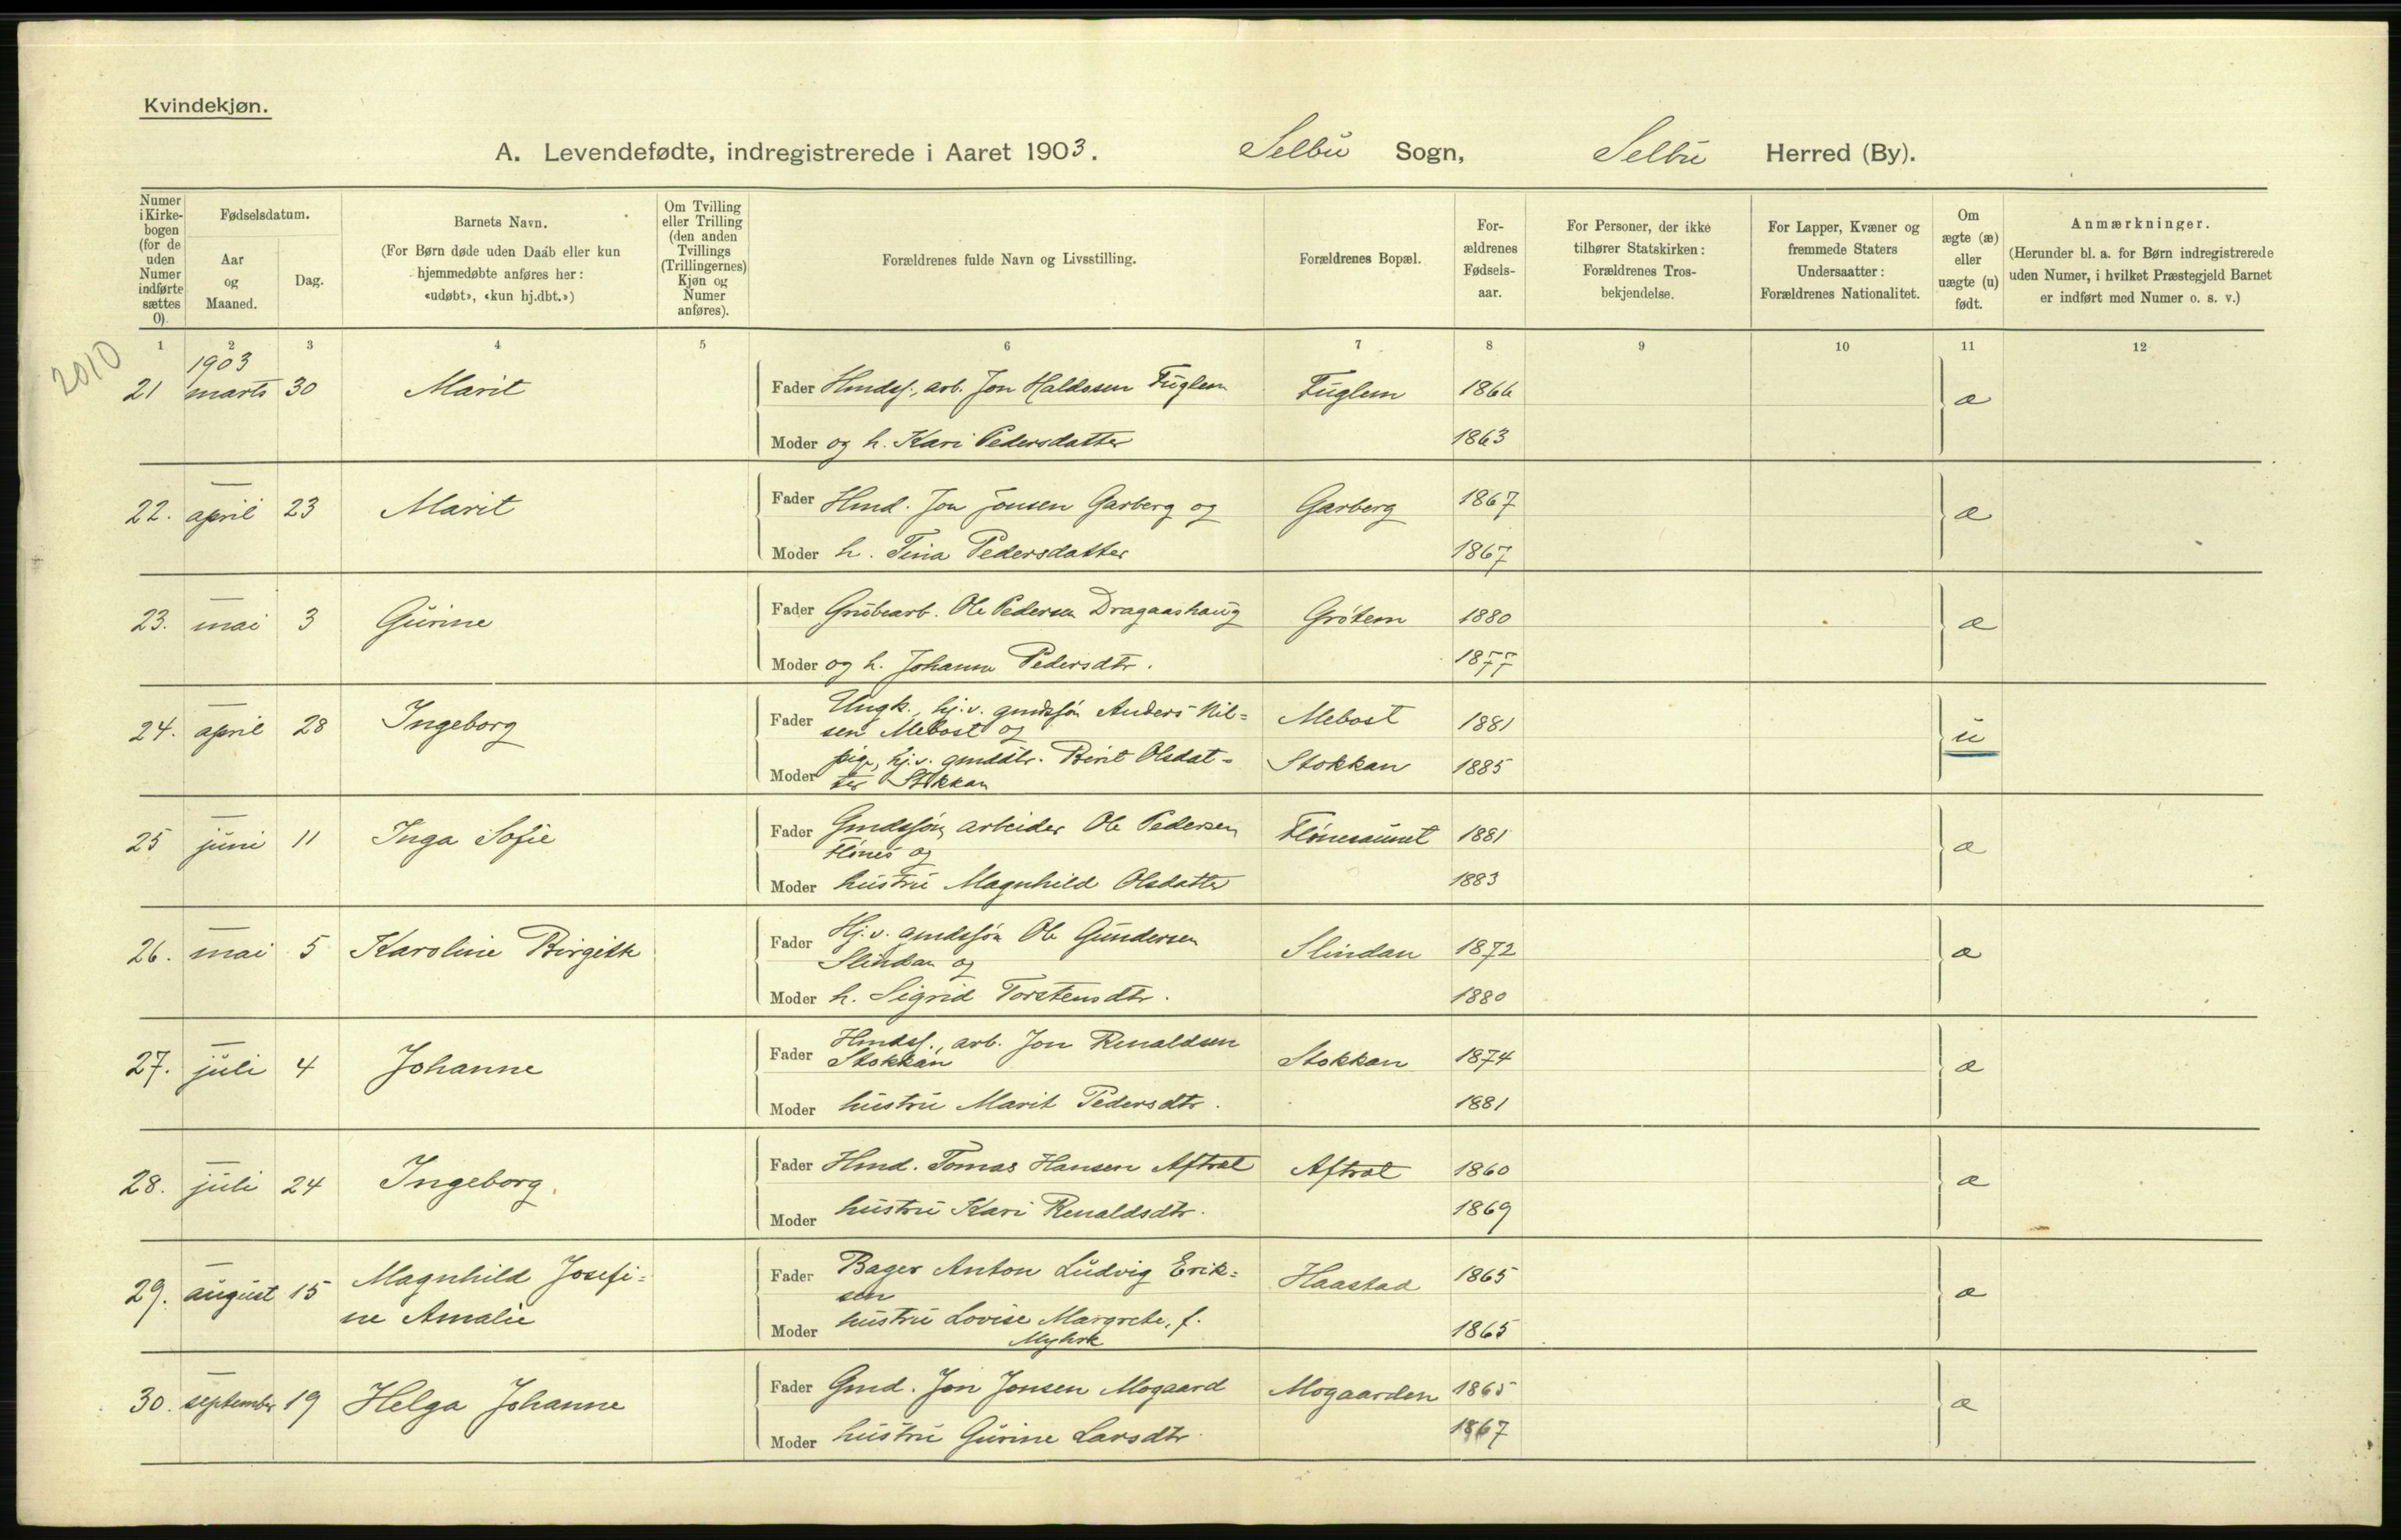 Kvindekjøn.
A. Levendefødte, indregistrerede i Aaret 1903. Selbu Sogn, Selbu Herred (By).
Numer i Kirkebogen (for de uden Numer indførte sættes 0).
Fødselsdatum.
Aar og Maaned.
Dag.
Barnets Navn.
(For Børn døde uden Daab eller kun hjemmedøbte anføres her: «udøbt», «kun hj.dbt.»)
Om Tvilling eller Trilling (den anden Tvillings (Trillingernes) Kjøn og Numer anføres).
Forældrenes fulde Navn og Livsstilling.
Forældrenes Bopæl.
Forældrenes Fødselsaar.
For Personer, der ikke tilhører Statskirken: Forældrenes Trosbekjendelse.
For Lapper, Kvæner og fremmede Staters Undersaatter: Forældrenes Nationalitet.
Om ægte (æ) eller uægte (u) født.
Anmærkninger.
(Herunder bl. a. for Børn indregistrerede uden Numer, i hvilket Præstegjeld Barnet er indført med Numer o. s. v.)
1 2 3 4 5 6 7 8 9 10 11 12
2010
1903
21 marts 30 Marit Fader Hmdsf., arb. Jon Haldssen Fuglem Fuglem 1866 æ
Moder og h. Kari Pedersdatter 1863
22. april 23 Marit Fader Hmd. Jon Jonsen Garberg og Garberg 1867 æ
Moder h. Tina Pedersdatter 1867
23. mai 3 Gurine Fader Grubearb. Ole Pedersen Dragaashaug Grötem 1880 æ
Moder og h. Johanna Pedersdtr. 1877
24. april 28 Ingeborg Fader Ungk., hj.v. gmdsön Anders Nil=
sen Mebost og Mebost 1881 u
Moder pige, hj.v. gmddtr. Berit Olsdat=
ter Stokkan Stokkan 1885
25 juni 11 Inga Sofie Fader Gmdssön, arbeider Ole Pedersen
Flönes og Flönesaunet 1881 æ
Moder hustru Magnhild Olsdatter 1883
26. mai 5 Karoline Birgitte Fader Hj.v. gmdssön Ole Gundersen
Slindan og Slindan 1872 æ
Moder h. Sigrid Torstensdtr. 1880
27. juli 4 Johanne Fader Hmdsf., arb. Jon Renaldsen
Stokkan Stokkan 1874 æ
Moder hustru Marit Pedersdtr. 1881
28. juli 24 Ingeborg Fader Hmd. Tomas Hansen Aftret Aftret 1860 æ
Moder hustru Kari Renaldsdtr. 1869
29. august 15 Magnhild Josefi=
ne Amalie Fader Bager Anton Ludvig Erik=
sen Haastad 1865 æ
Moder hustru Lovise Margrete, f.
Myhre 1865
30. september 19 Helga Johanne Fader Gmd. Jon Jonsen Mogaard Mogaarden 1865 æ
Moder hustru Gurine Larsdtr. 1867